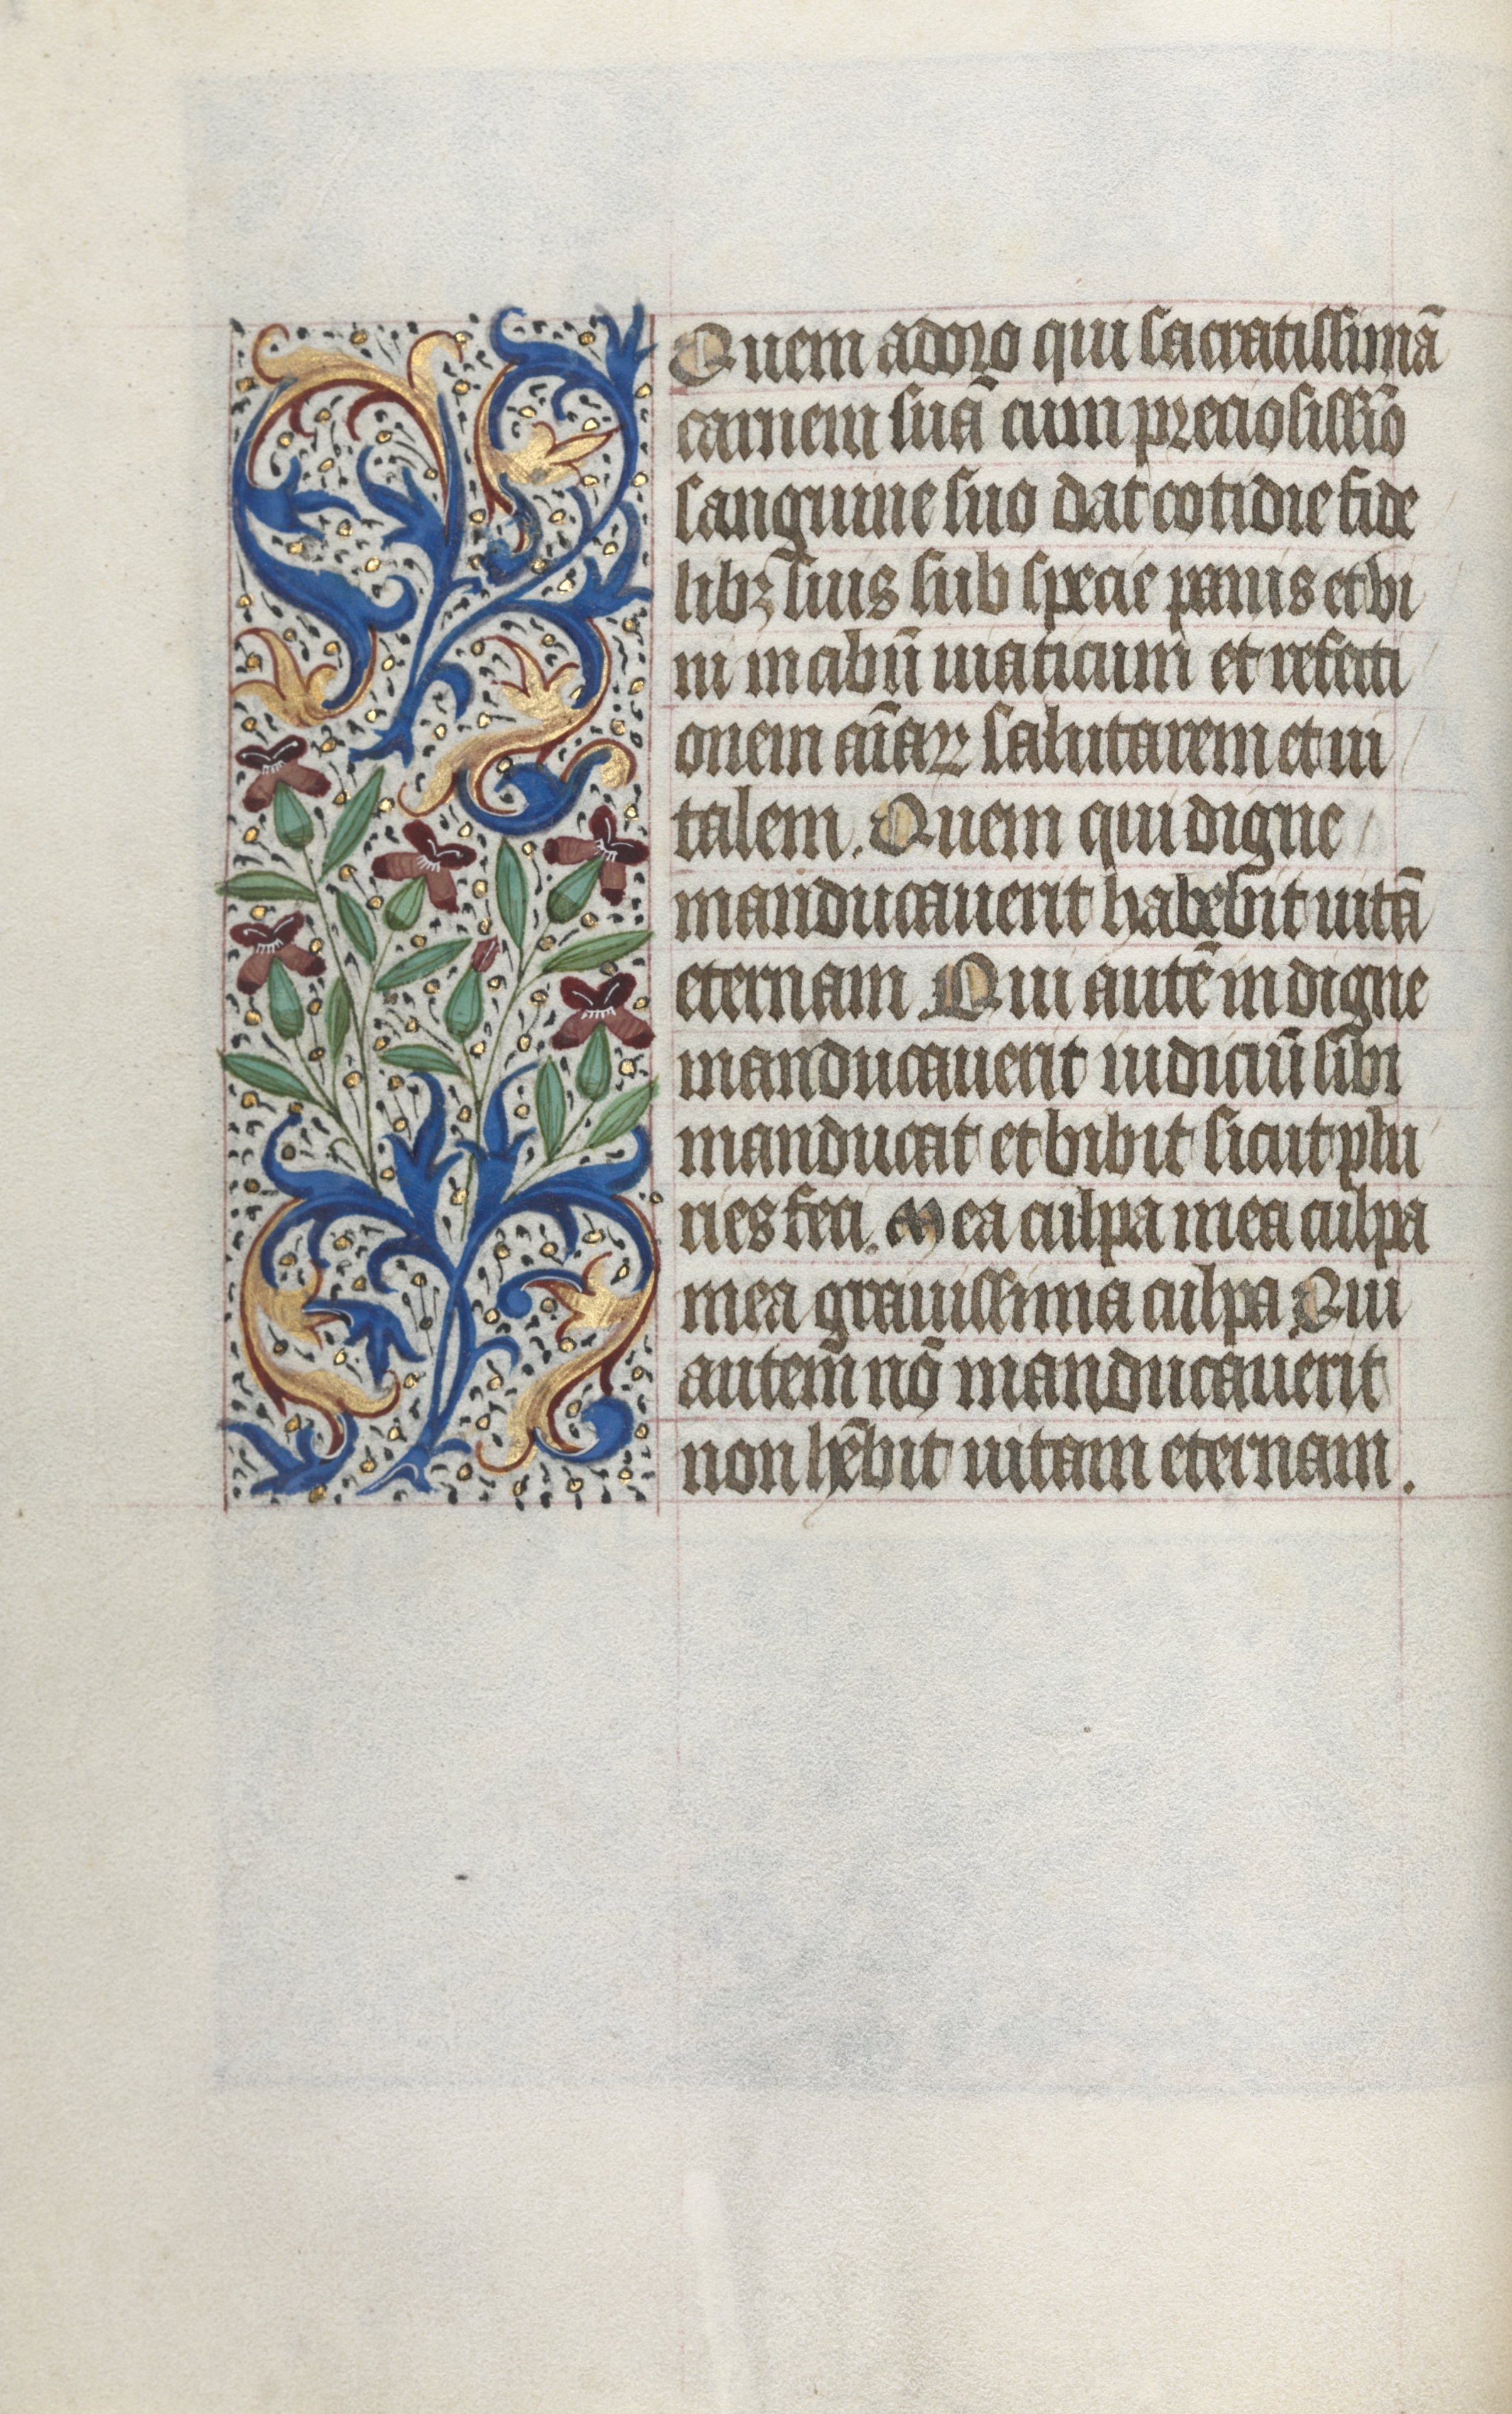 Quem adoro qui sacratissimā
carnem suā cum preciosissīo
sanguine suo dat cotidie fide
libꝫ suis sub specie panis et vi
ni in cibū uiaticum et refecti
onem aīaꝝ salutarem et ui
talem. Quem qui digne
manducauerit habebit uitā
eternam. Qui autē indigne
manducauerit iudiciū sibi
manducat et bibit sicut plu
ries feci. Mea culpa mea culpa
mea grauissima culpa Qui
autem nō manducauerit
non hēbit uitam eternam.